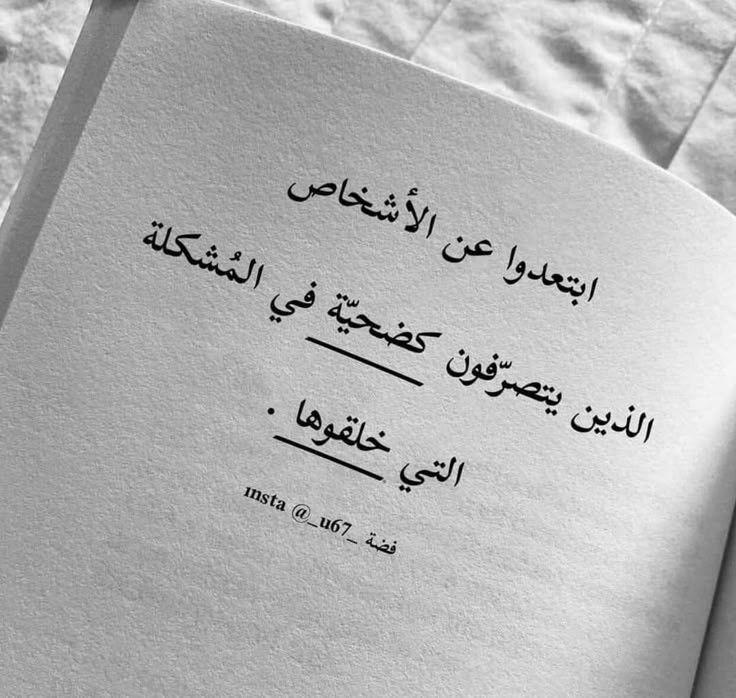 ابتعدوا عن الأشخاص
الذين يتصرّفون كضحيّة في المُشكلة
التي خلقوها .
insta @_u67_ فضة